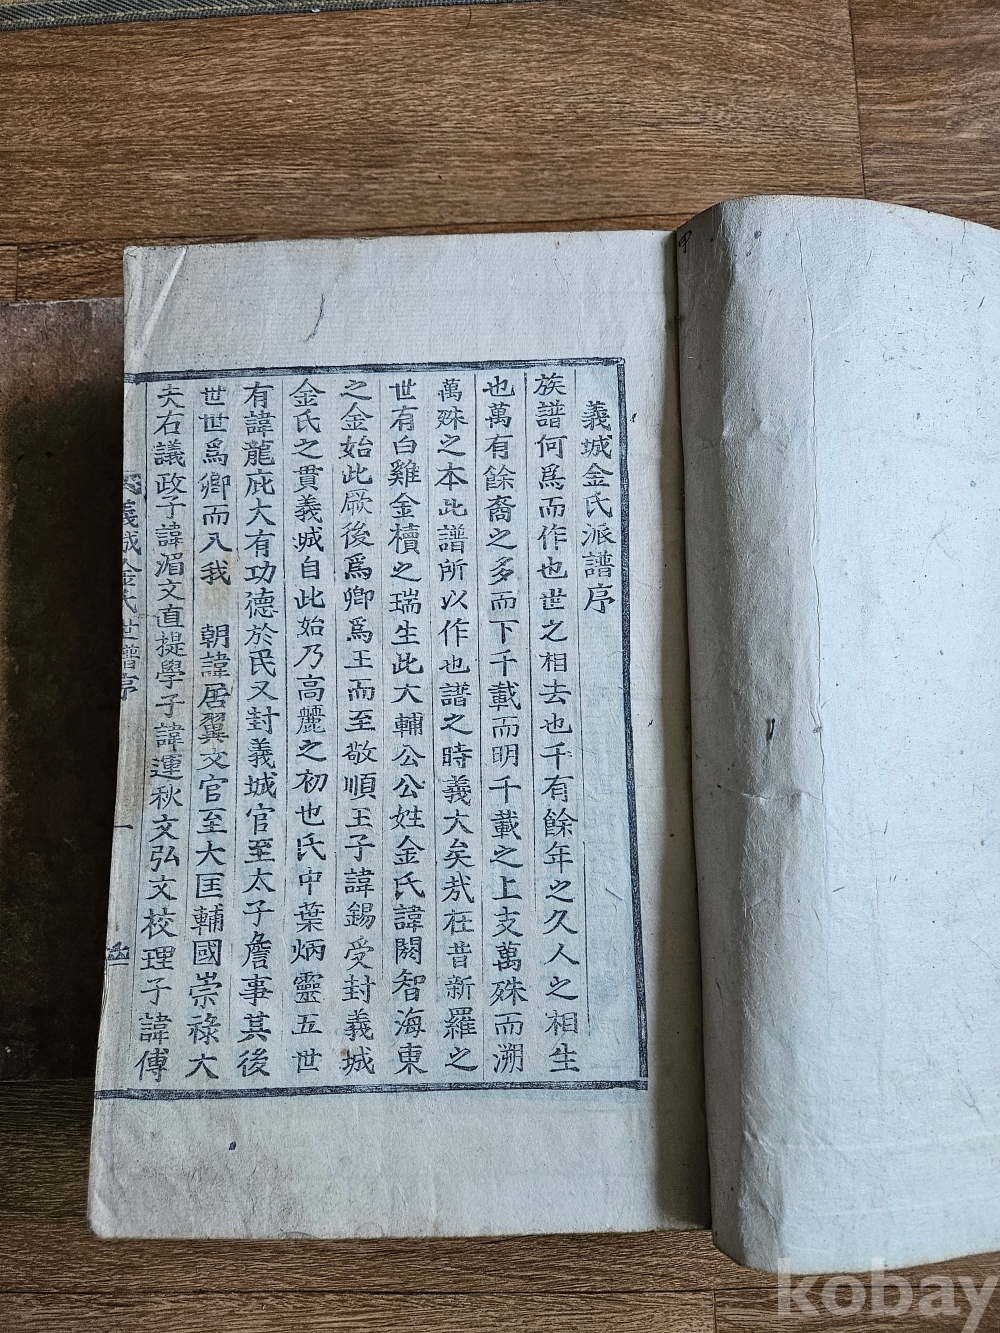 甲
義城金氏派譜序
族譜何爲而作也世之相去也千有餘年之久人之相生
也萬有餘裔之多而下千載而明千載之上支萬殊而溯
萬殊之本此譜所以作也譜之時義大矣㢤在昔新羅之
世有白雞金櫝之瑞生此大輔公公姓金氏諱閼智海東
之金始此厥後爲卿爲王而至敬順王子諱錫受封義城
金氏之貫義城自此始乃高麗之初也氏中葉炳靈五世
有諱龍庇大有功德於民又封義城官至太子詹事其後
世世爲卿而入我 朝諱居翼文官至大匡輔國崇祿大
夫右議政子諱湄文直提學子諱運秋文弘文校理子諱傅
義城金氏世譜序
一
kobay